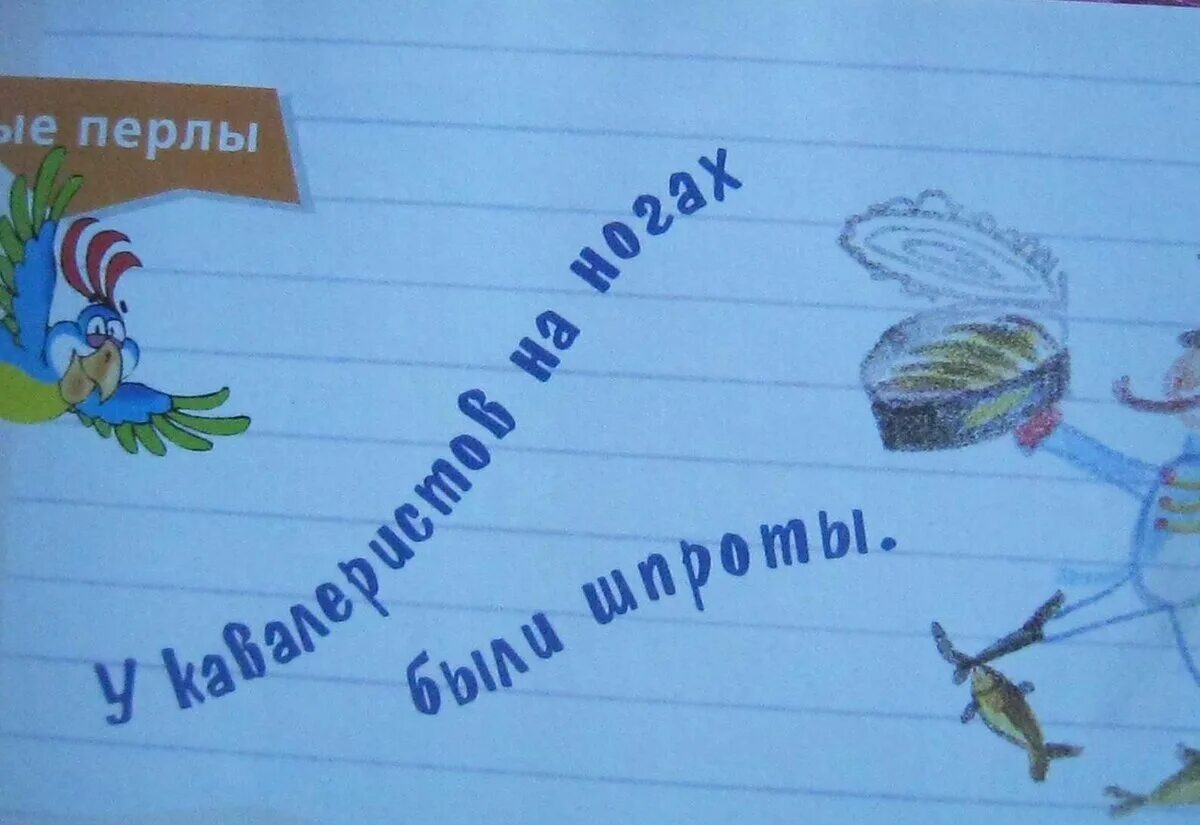 ые перлы
У кавалеристов на ногах
были шпроты.